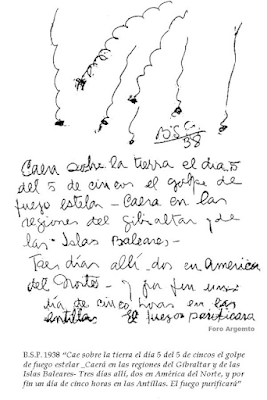 B.S.P.
38
Caera sobre la tierra el dia 5
del 5 de cincos el golpe de
fuego estelar – Caera en las
regiones del Gibraltar y de
las Islas Baleares –
Tres días allí dos en America
del Norte – y por fin un
dia de cinco horas en las
Antillas El fuego purificara
Foro Argento
B.S.P. 1938 “Cae sobre la tierra el día 5 del 5 de cincos el golpe
de fuego estelar _Caerá en las regiones del Gibraltar y de las
Islas Baleares- Tres días allí, dos en América del Norte, y por
fín un día de cinco horas en las Antillas. El fuego purificará”